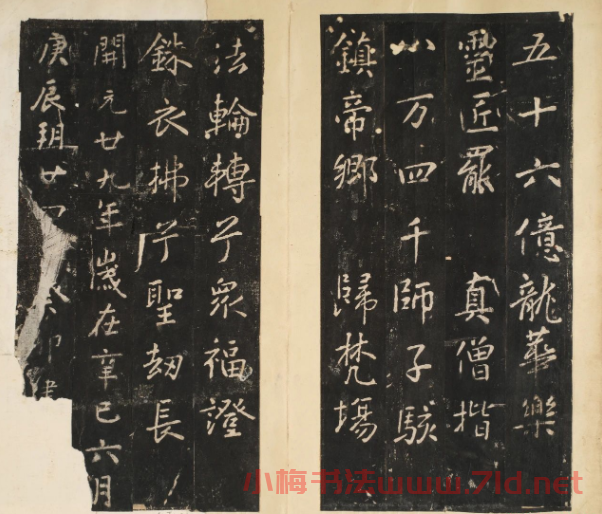 五十六億龍華樂
靈匠罷 真僧揩
八万四千師子駭
鎮帝鄉 歸梵場
法輪轉兮眾福證
銖衣拂兮聖劫長
開元廿九年歲在辛巳六月
庚辰朔廿 癸卯建
小梅书法www.7ld.net